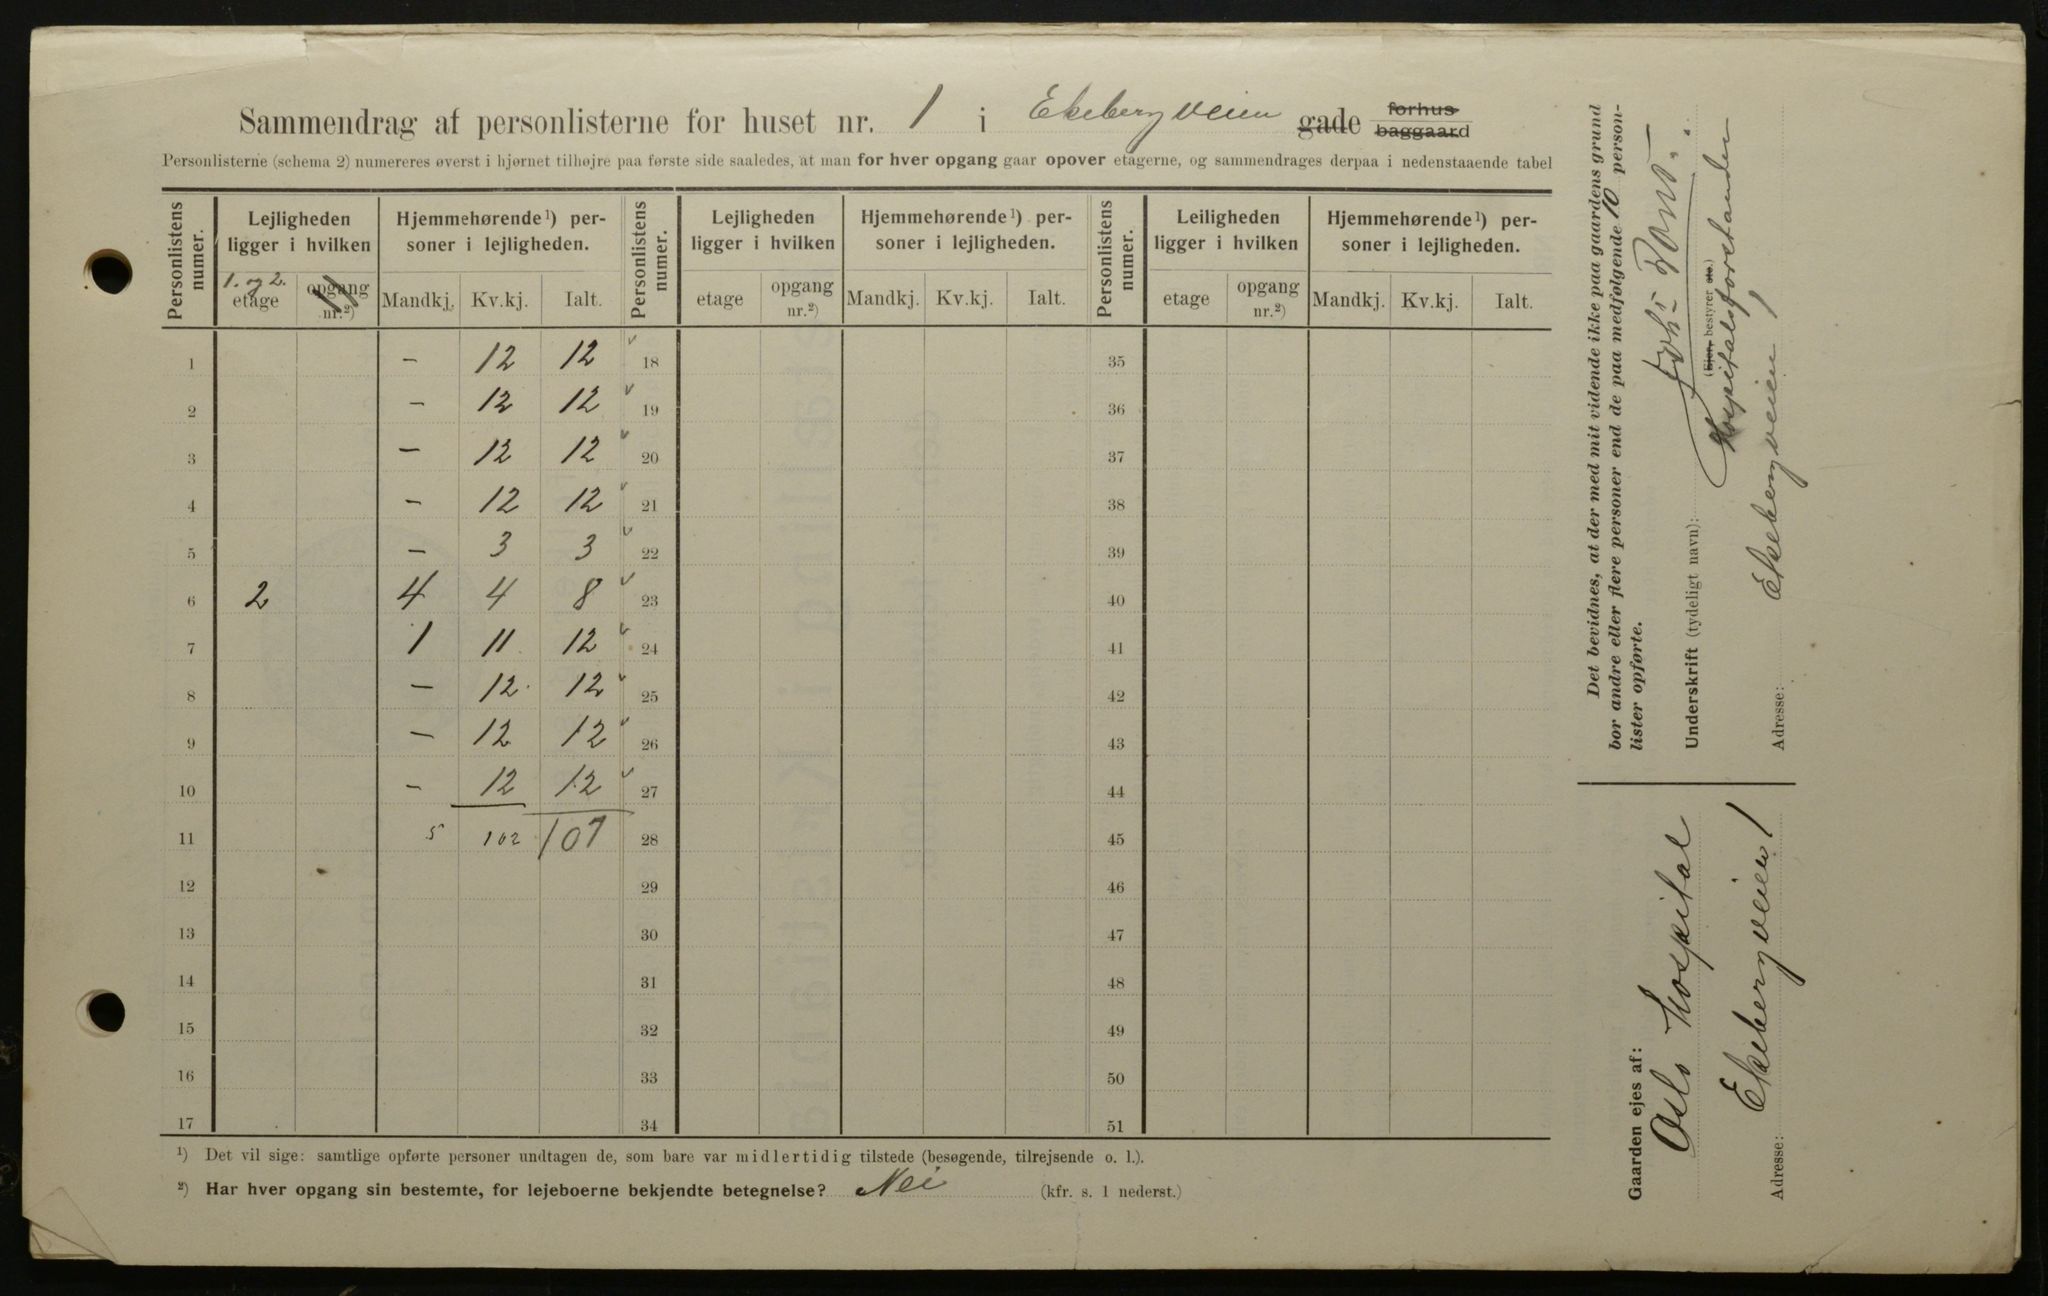 Sammendrag af personlisterne for huset nr. 1 i Ekebergveien gade forhus baggaard
Personlisterne (schema 2) numereres øverst i hjørnet tilhøjre paa første side saaledes, at man for hver opgang gaar opover etagerne, og sammendrages derpaa i nedenstaaende tabel
Personlistens numer. Lejligheden ligger i hvilken Hjemmehørende¹) personer i lejligheden. Personlistens numer. Lejligheden ligger i hvilken Hjemmehørende¹) personer i lejligheden. Personlistens numer. Leiligheden ligger i hvilken Hjemmehørende¹) personer i lejligheden.
1. og 2.
etage opgang nr.²) Mandkj. Kv.kj. Ialt. etage opgang nr.²) Mandkj. Kv.kj. Ialt. etage opgang nr.²) Mandkj. Kv.kj. Ialt.
1 – 12 12 18 35
2 – 12 12 19 36
3 – 12 12 20 37
4 – 12 12 21 38
5 – 3 3 22 39
6 2 4 4 8 23 40
7 1 11 12 24 41
8 – 12 12 25 42
9 – 12 12 26 43
10 – 12 12 27 44
11 5 102 107 28 45
12 29 46
13 30 47
14 31 48
15 32 49
16 33 50
17 34 51
¹) Det vil sige: samtlige opførte personer undtagen de, som bare var midlertidig tilstede (besøgende, tilrejsende o. l.).
²) Har hver opgang sin bestemte, for lejeboerne bekjendte betegnelse? Nei (kfr. s. 1 nederst.)
Det bevidnes, at der med mit vidende ikke paa gaardens grund
bor andre eller flere personer end de paa medfølgende 10 person-
lister opførte.
Underskrift (tydeligt navn):
(Ejer, bestyrer etc.)
Hospitalsforstander
Adresse: Ekebergveien 1
Gaarden ejes af:
Oslo Hospital
Adresse: Ekebergveien 1